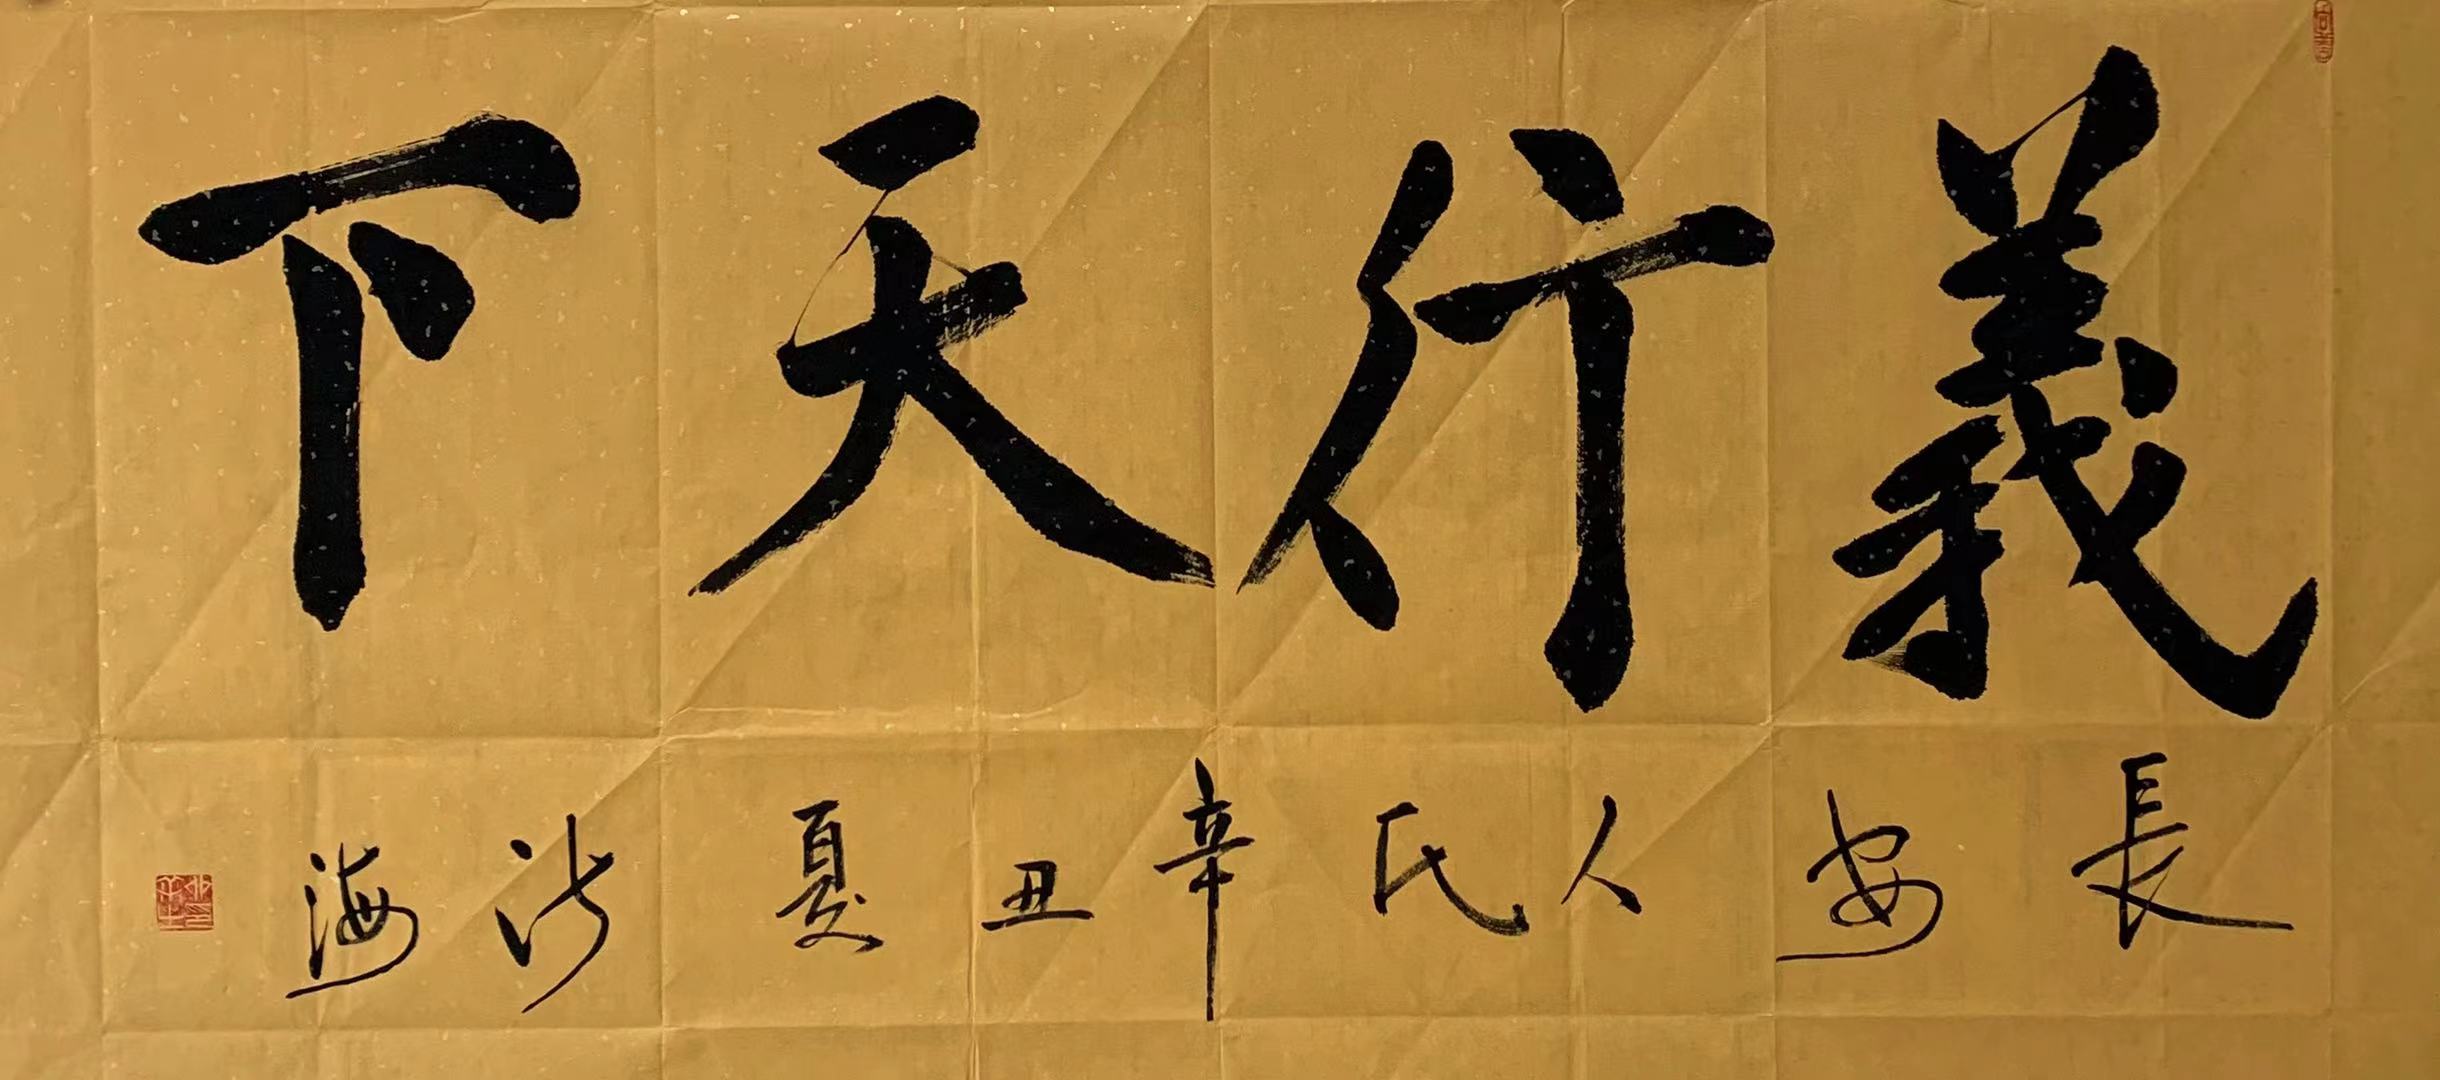 義行天下
長安人氏辛丑夏沙海